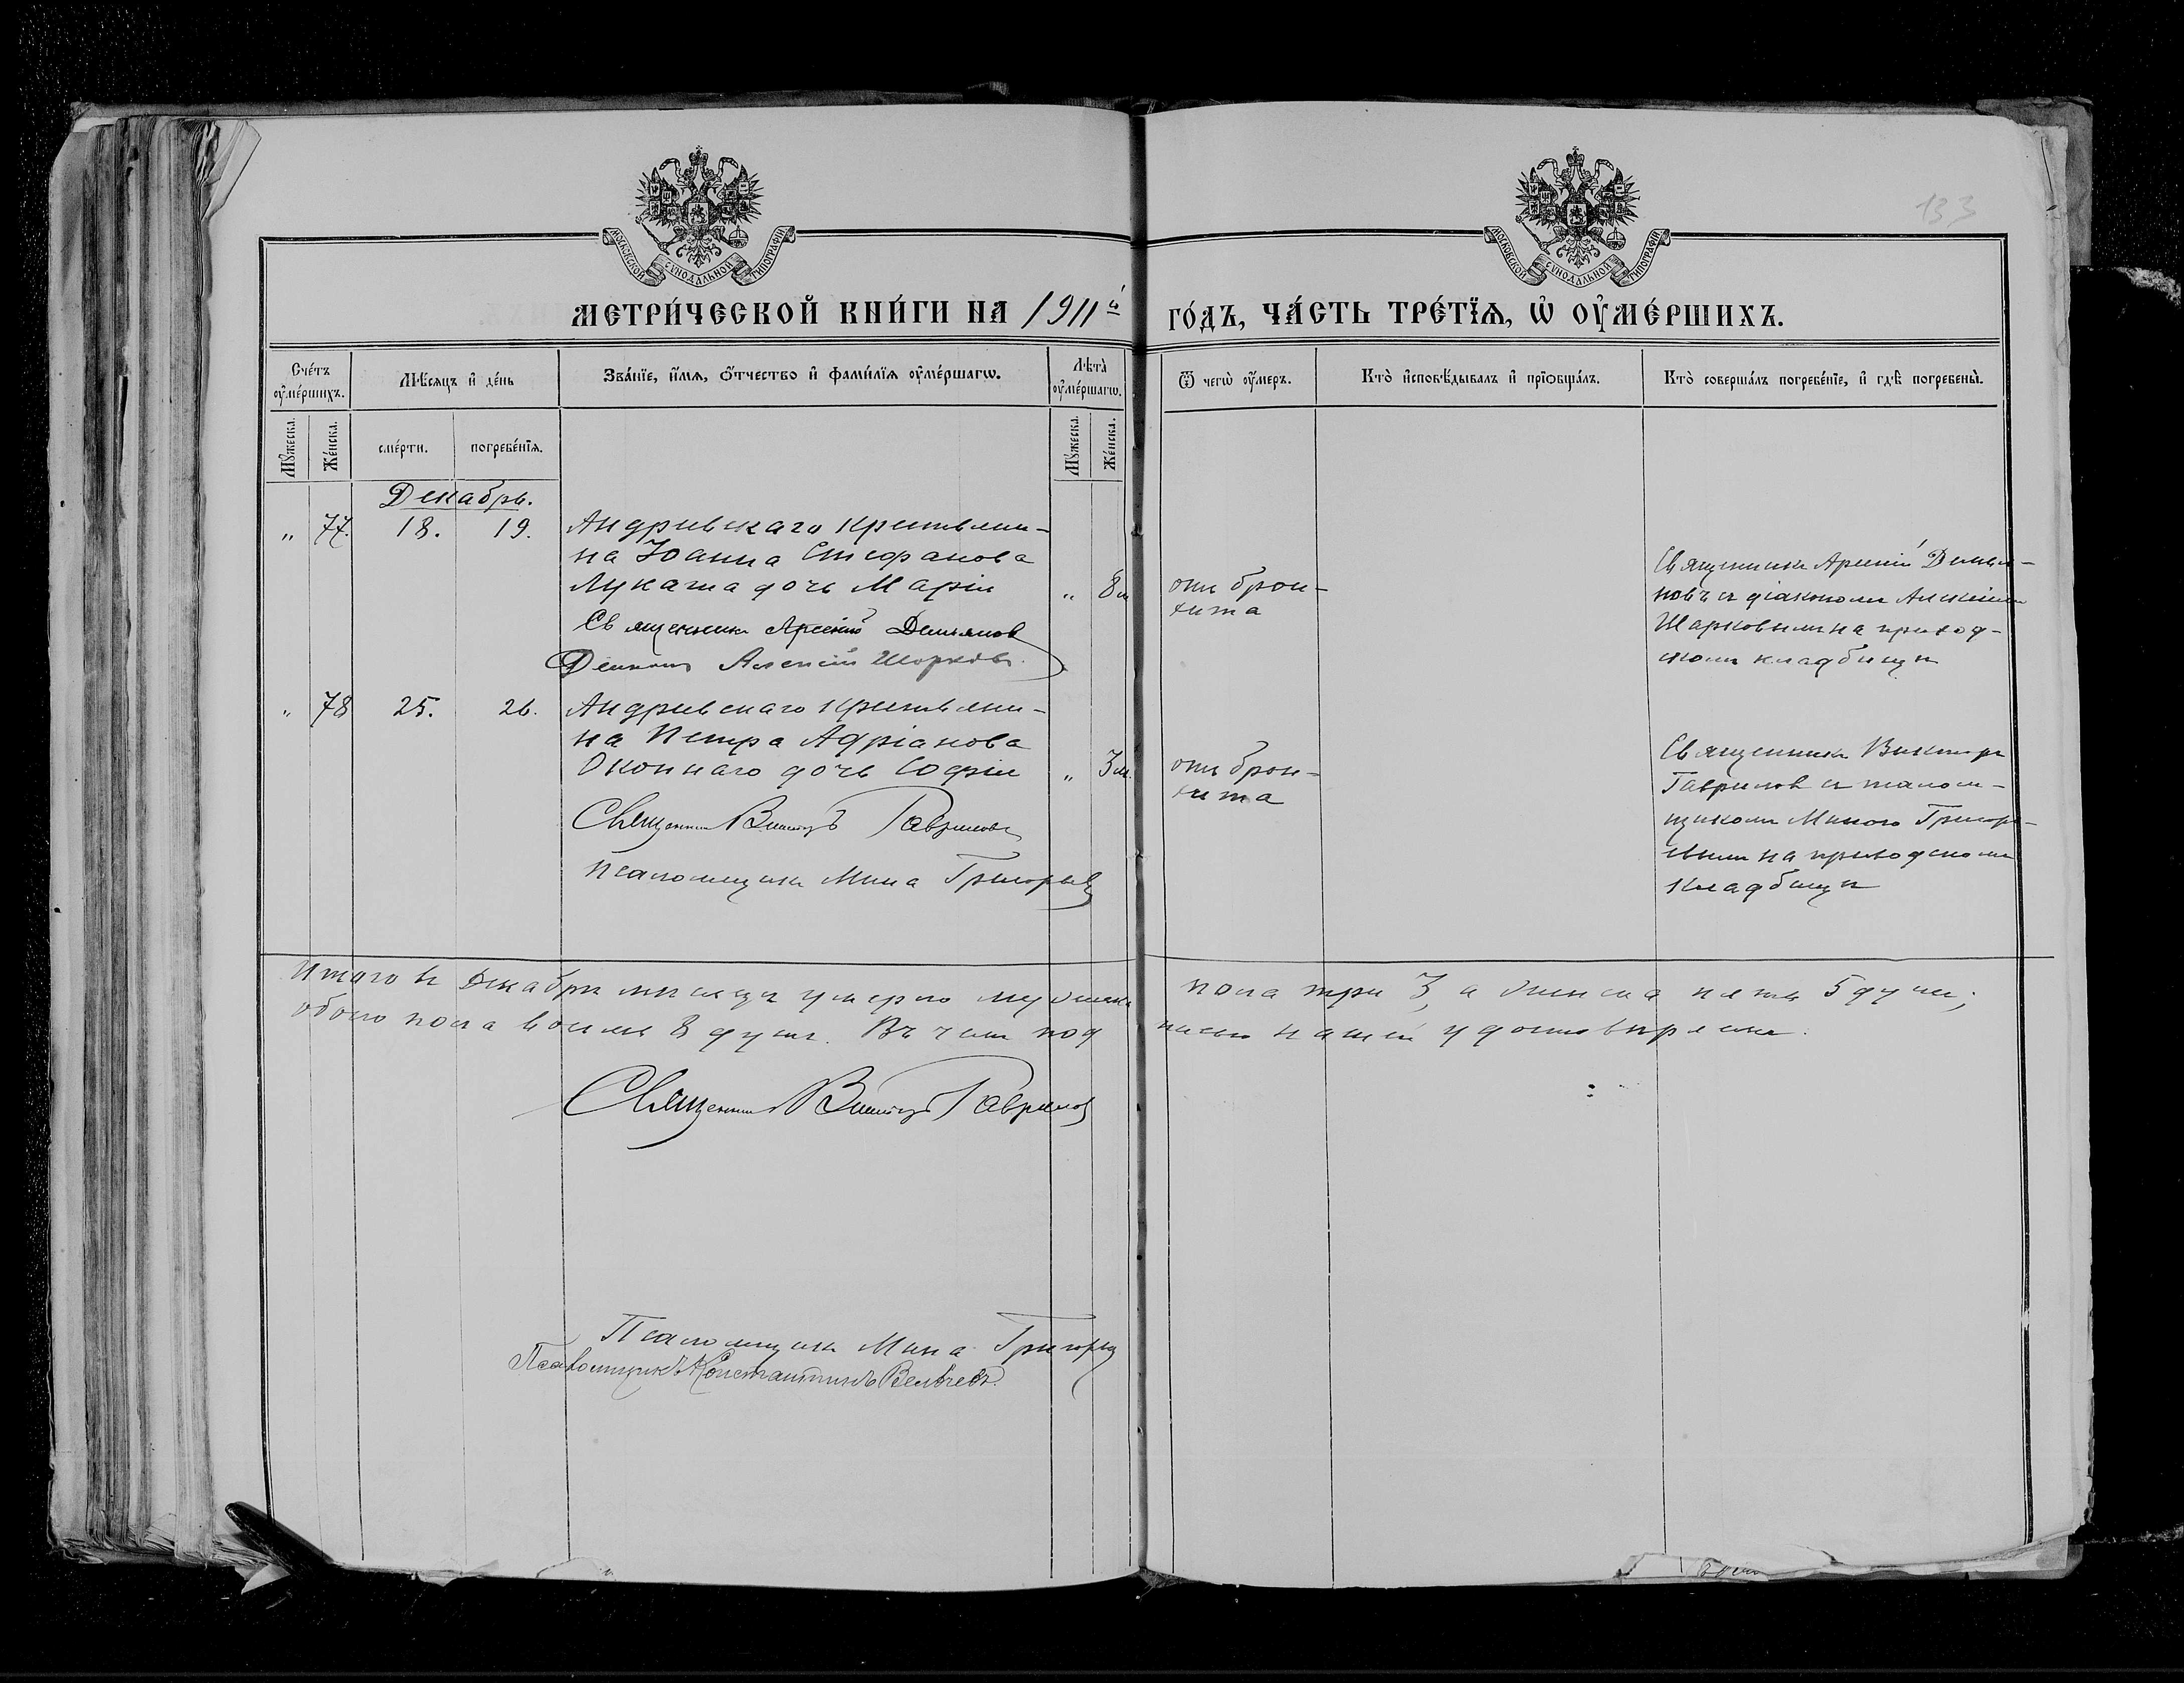 133
МОСКОВСКОЙ СѴНОДАЛЬНОЙ ТИПОГРАФІИ
МОСКОВСКОЙ СѴНОДАЛЬНОЙ ТИПОГРАФІИ
МЕТРИ́ЧЕСКОЙ КНИ́ГИ НА 1911й ГО́ДЪ, ЧА́СТЬ ТРЕ́ТЇѦ, Ѡ҆ ОУ҆МЕ́РШИХЪ.
Сче́тъ оу҆ме́ршихъ.
Мѣ́сѧцъ и҆ де́нь
Зва́нїе, и҆́мѧ, о҆́тчество и҆ фами́лїѧ оу҆ме́ршагѡ.
Лѣ́та оу҆ме́ршагѡ.
Ѿ чегѡ̀ оу҆́меръ.
Кто̀ и҆сповѣ́дывалъ и҆ прїѡбща́лъ.
Кто̀ соверша́лъ погребе́нїе, и҆ гдѣ̀ погребены̀.
Мꙋ́жеска.
Же́нска.
сме́рти.
погребе́нїѧ.
Мꙋ́жеска.
Же́нска.
Декабрь.
" 77. 18. 19. Андреевскаго крестьяни-
на Іоанна Стефанова
Лукаша дочь Марія " 8м
Священникъ Арсеній Демьянов
Діаконъ Алексій Шарковъ.
отъ брон-
хита
Священникъ Арсеній Демья-
новъ съ діакономъ Алексіемъ
Шарковымъ на приход-
скомъ кладбищѣ
" 78 25. 26. Андреевскаго крестьяни-
на Петра Адріанова
Оконнаго дочь Софія " 3м.
Священникъ Викторъ Гавриловъ
Псаломщикъ Мина Григорьевъ
отъ брон-
хита
Священникъ Викторъ
Гаврилов съ псалом-
щикомъ Миною Григорь-
евымъ на приходскомъ
кладбищѣ
Итого въ Декабрѣ мѣсяцѣ умерло мужеска пола три 3, а женска пять 5 душъ;
обоего пола восемь 8 душъ. Въ чемъ подписью нашей удостовѣряемъ.
Священникъ Викторъ Гаврилов
Псаломщикъ Мина Григорьев
Псаломщикъ Константинъ Вельчевъ.